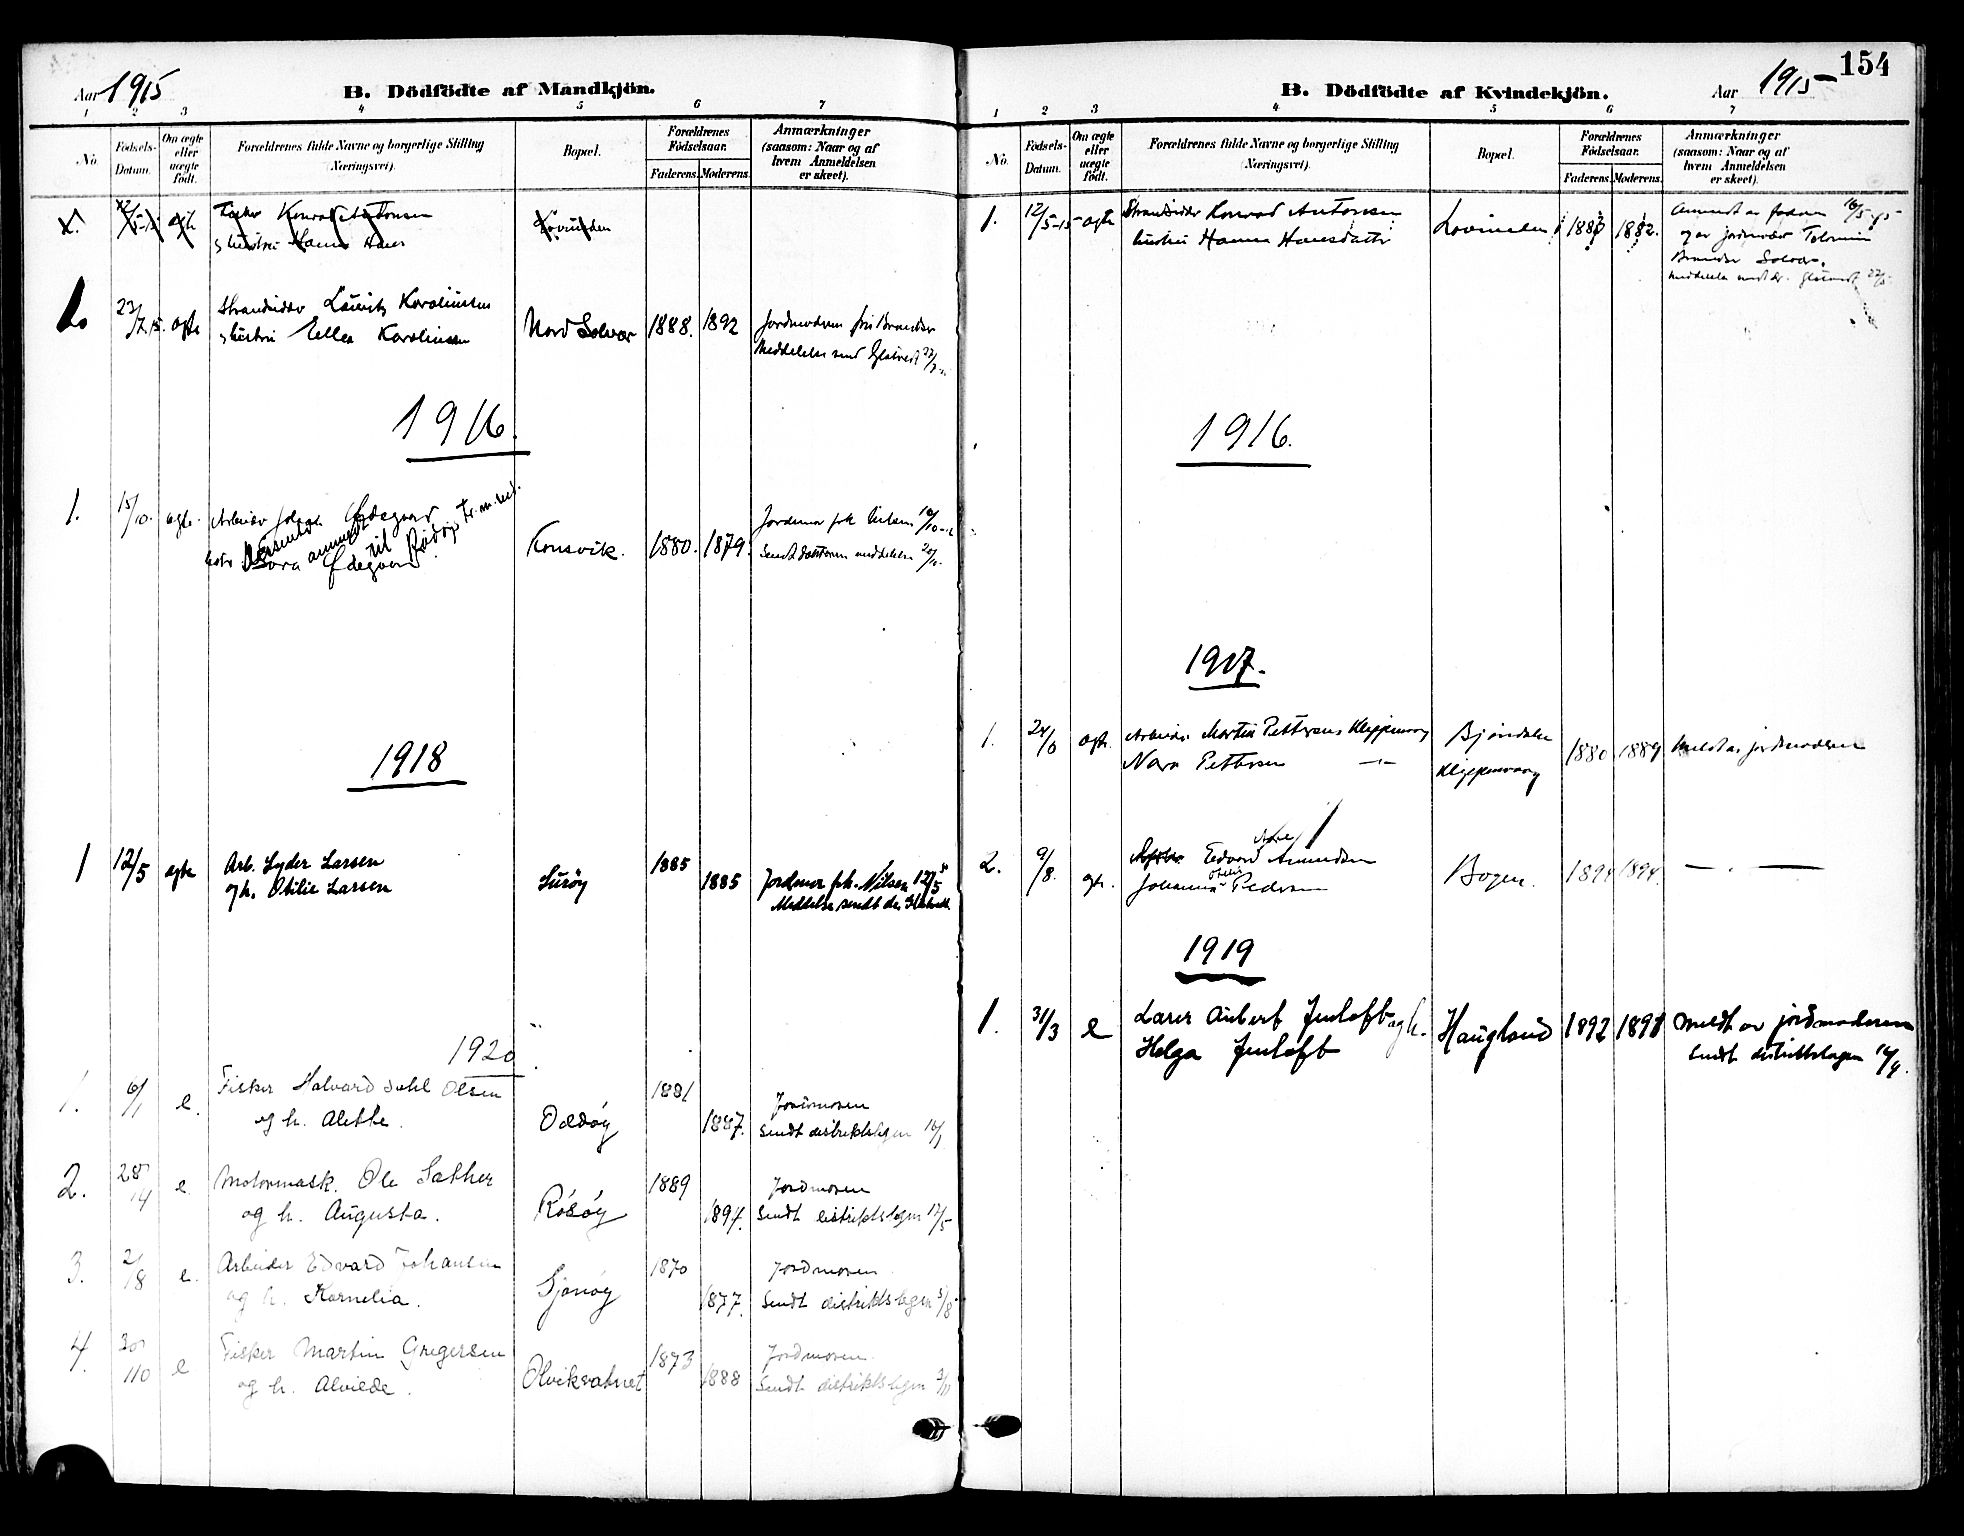 Aar 1915
B. Dödfödte af Mandkjön.
1 2 3 4 5 6 7
No.
Födsels-Datum.
Om ægte eller uægte födt.
Forældrenes fulde Navne og borgerlige Stilling (Næringsvei).
Bopæl.
Forældrenes Födselsaar.
Faderens. Moderens.
Anmærkninger (saasom: Naar og af hvem Anmeldelsen er skeet).
1. 12/5-15 ægte Konrad Antonsen
g hustru Hanna
Lovunden
1. 23/7.15. ægte Strandsidder Lauritz Karoliussen
g hustru Ellea Karoliussen
Nord Solvær 1888. 1892 Jordmoderen fru Brandser
Meddelelse send Glatved 27/7
1916.
1. 15/10. ægte. Arbeider Johan Ødegaard
hstr. Nora Ødegaard
anmeldt til Rødøy
Konsvik. 1880. 1879. Jordmor frk. 16/10
Sendt doktoren meddelelse 20/10
1918
1 12/5 ægte Arb. Lyder Larsen
og h. Otilie Larsen
Susøy 1885 1885 Jordmor frk. Nilsen 12/5
Meddelse sendt dr. Glatved
1920
1. 6/1 e. Fisker Halvard Dahl Olsen
og h. Alette.
Oldøy 1881 1887. Jordmoren
Sendt distriktslegen 16/1
2. 28/4 e. Motormask. Ole Sæther
og h. Augusta.
Rødøy 1889 1894. Jordmoren
Sendt distriktslegen 12/5
3. 2/8 e. Arbeider Edvard Johansen
og h. Kornelia.
Gjønøy 1870 1877. Jordmoren
Sendt distriktslegen 3/8
4. 30/10 e Fisker Martin Gregersen
og h. Alvilde.
Olvikvatnet 1873 1888 Jordmoren.
Sendt distriktslegen 3/11
154
Aar 1915
B. Dödfödte af Kvindekjön.
1 2 3 4 5 6 7
No.
Födsels-Datum.
Om ægte eller uægte födt.
Forældrenes fulde Navne og borgerlige Stilling (Næringsvei).
Bopæl.
Forældrenes Födselsaar.
Faderens. Moderens.
Anmærkninger (saasom: Naar og af hvem Anmeldelsen er skeet).
1. 12/5-15 ægte Strandsidder Konrad Antonsen
hustru Hanna Hansdatter
Lovunden 1882. Anmeldt av faderen 16/5-15
og av jordmoder
Brandser Solvær.
Meddelelse sendt dr. Glatved
1916.
1917.
1. ægte. Arbeider Martin Pettersen Kleppenvaag
Nora Pettersen —"—
Bjørndalen
Kleppenvaag
1880 1889 Meldt av jordmoderen
2. 9/8. Edvard Amundsen
Johanna Pedersen
Bogen. 1894 1894. — " —
1919
1. 31/3 e Lærer Aubert Jentoft og h.
Helga Jentoft
Haugland 1892 1891 Meldt av jordmoderen
Sendt distriktslegen 14/4.